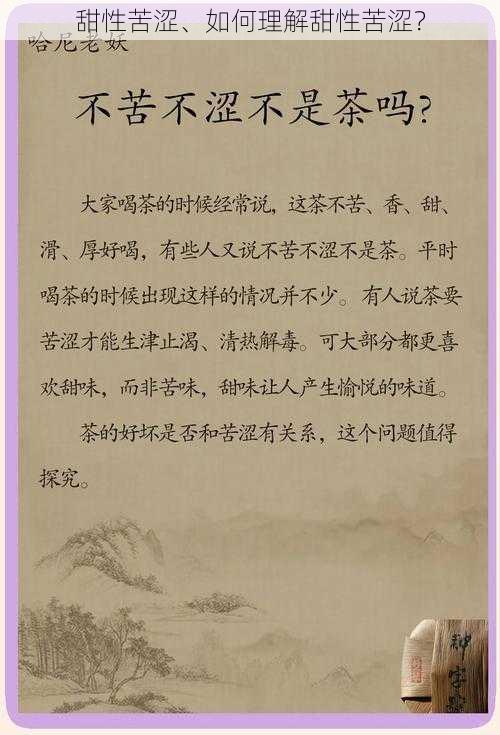 甜性苦涩、如何理解甜性苦涩？
哈尼老妖
不苦不涩不是茶吗?
大家喝茶的时候经常说，这茶不苦、香、甜、
滑、厚好喝，有些人又说不苦不涩不是茶。平时
喝茶的时候出现这样的情况并不少。有人说茶要
苦涩才能生津止渴、清热解毒。可大部分都更喜
欢甜味，而非苦味，甜味让人产生愉悦的味道。
茶的好坏是否和苦涩有关系，这个问题值得
探究。